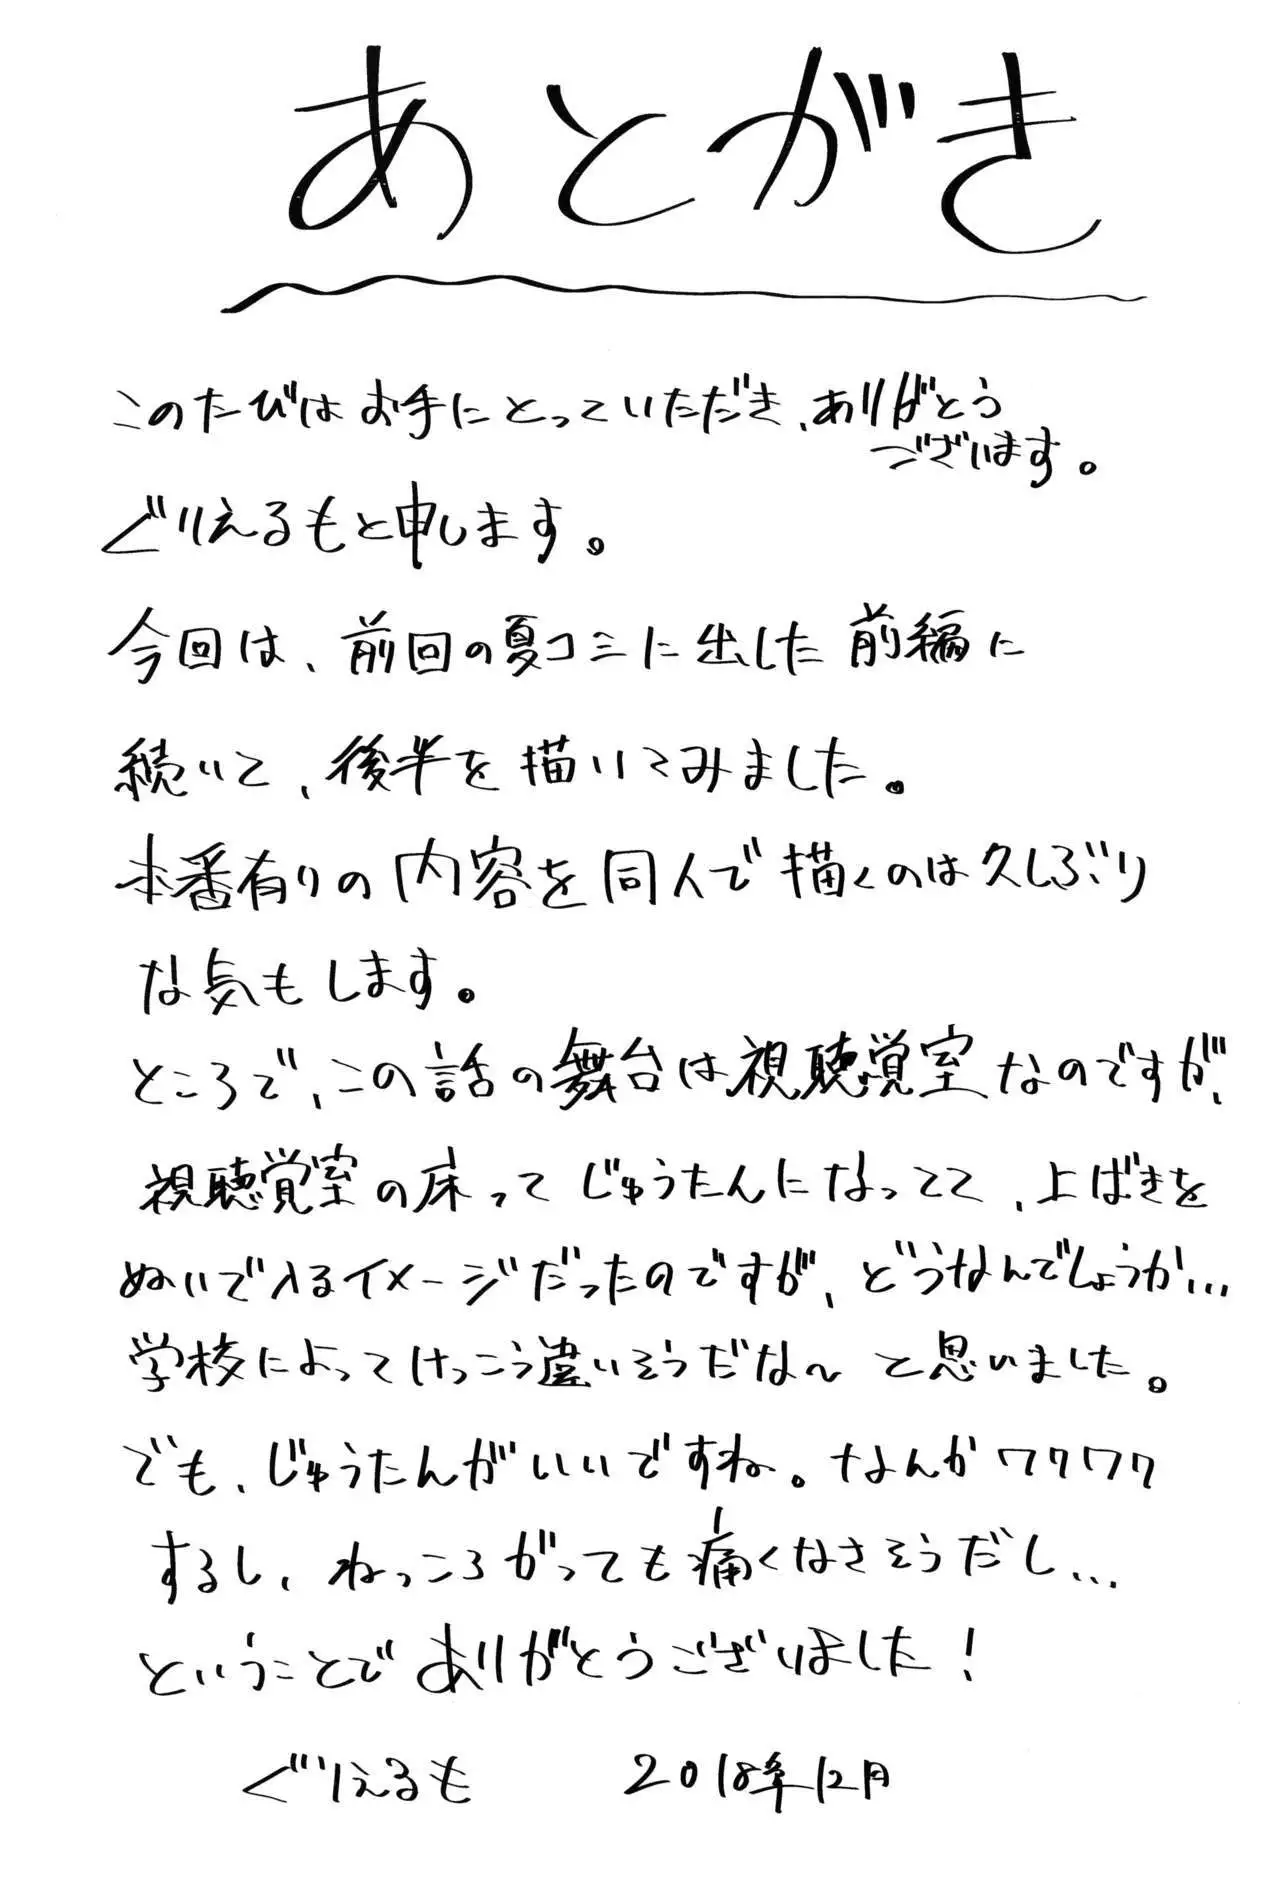 あとがき
このたびはお手にとっていただき、ありがとう
ございます。
ぐりえるもと申します。
今回は、前回の夏コミに出した前編に
続いて、後半を描いてみました。
本番有りの内容を同人で描くのは久しぶり
な気もします。
ところで、この話の舞台は視聴覚室なのですが、
視聴覚室の床ってじゅうたんになってて、上ばきを
ぬいで入るイメージだったのですが、どうなんでしょうか...
学校によってけっこう違いそうだな〜と思いました。
でも、じゅうたんがいいですね。なんかワクワク
するし、ねっころがっても痛くなさそうだし...
ということでありがとうございました!
ぐりえるも 2018年12月